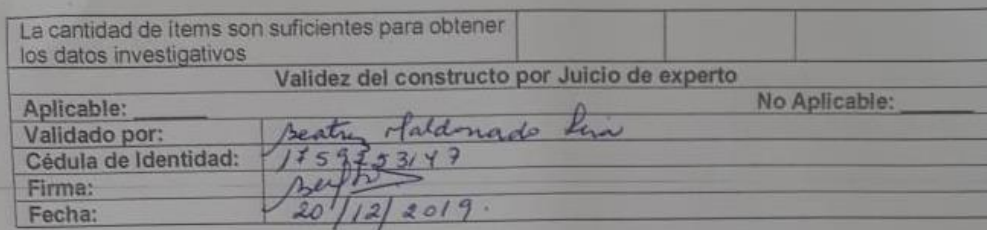 La cantidad de ítems son suficientes para obtener
los datos investigativos
Validez del constructo por Juicio de experto
Aplicable: ______ No Aplicable: ______
Validado por: Beatriz Maldonado
Cédula de Identidad:
Firma:
Fecha: 20/12/2019.